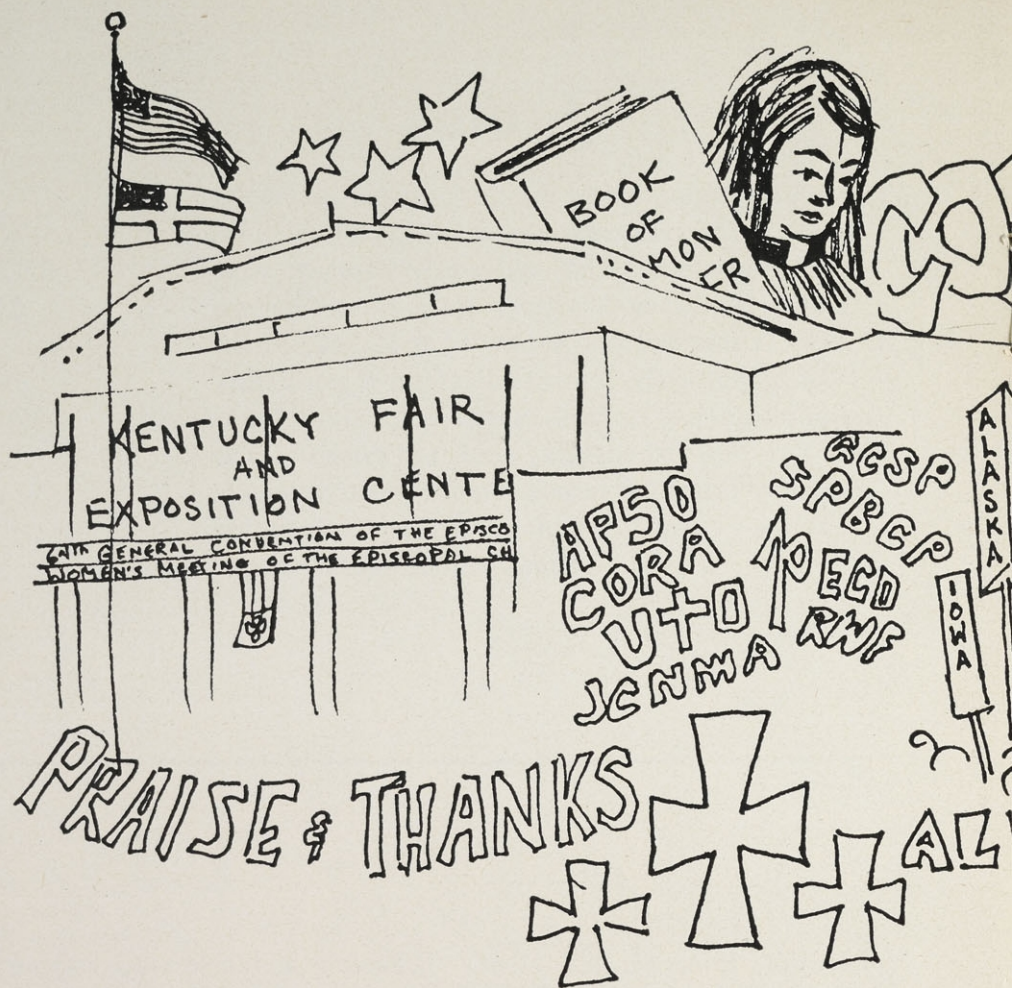 BOOK
OF
MON
ER
CO
KENTUCKY FAIR
AND
EXPOSITION CENTE
64TH GENERAL CONVENTION OF THE EPISCO
WOMEN'S MEETING OF THE EPISCOPAL CH
APSO
CORA
UTO
JCNMA
GCSP
SPBCP
PECD
RWF
ALASKA
IOWA
PRAISE & THANKS
AL